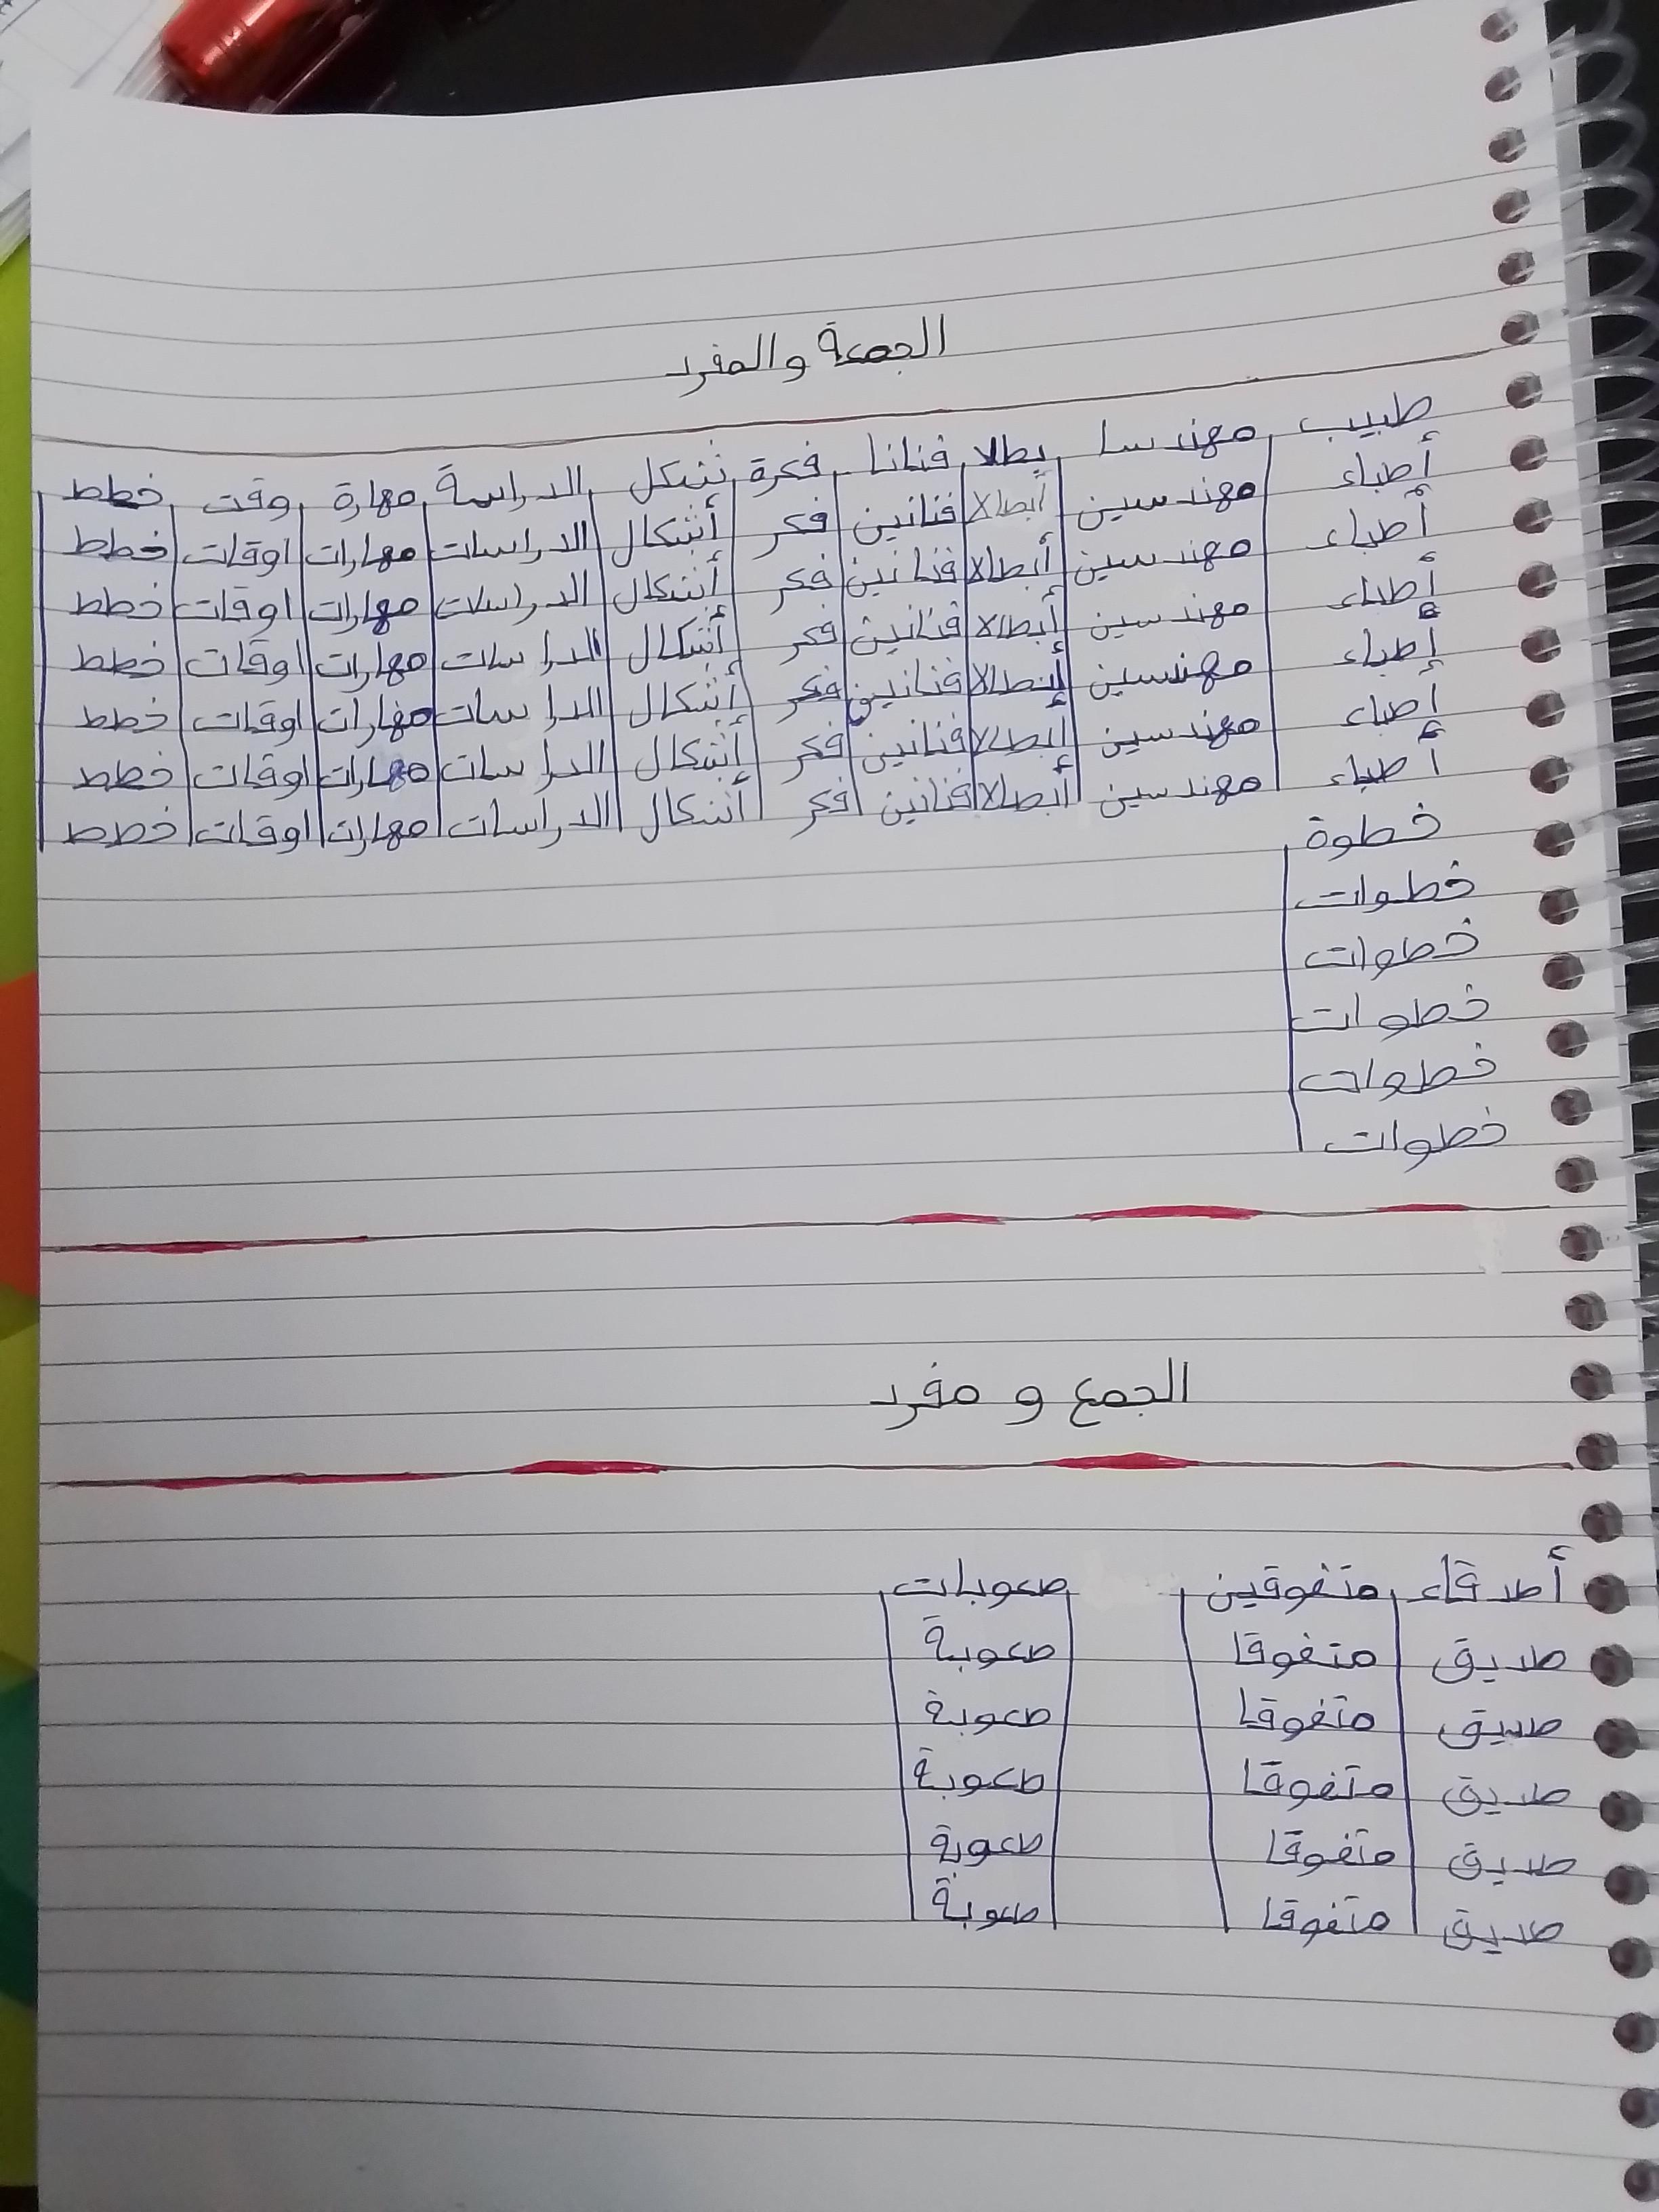 الجمعة والمفرد
طبيب مهندسا بطلا فنانا فكرة شكل الدراسة مهارة وقت خطط
أطباء مهندسين أبطالا فنانين فكر أشكال الدراسات مهارات اوقات خطط
أطباء مهندسين أبطالا فنانين فكر أشكال الدراسات مهارات اوقات خطط
أطباء مهندسين أبطالا فنانين فكر أشكال الدراسات مهارات اوقات خطط
أطباء مهندسين أبطالا فنانين فكر أشكال الدراسات مهارات اوقات خطط
أطباء مهندسين أبطالا فنانين فكر أشكال الدراسات مهارات اوقات خطط
أطباء مهندسين أبطالا فنانين فكر أشكال الدراسات مهارات اوقات خطط
خطوة
خطوات
خطوات
خطوات
خطوات
خطوات
الجمع و مفرد
أصدقاء متفوقين صعوبات
صديق متفوقا صعوبة
صديق متفوقا صعوبة
صديق متفوقا صعوبة
صديق متفوقا صعوبة
صديق متفوقا صعوبة